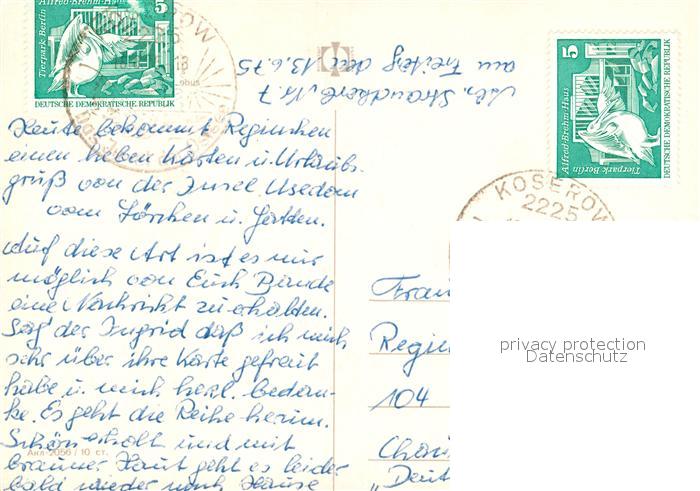 Alfred-Brehm-Haus
5
Tierpark Berlin
DEUTSCHE DEMOKRATISCHE REPUBLIK
KOSEROW
2225
5
Alfred-Brehm-Haus
Tierpark Berlin
DEUTSCHE DEMOKRATISCHE REPUBLIK
KOSEROW
2225
am Freitag den 13.6.75
Nr. 7
Heute bekommt Reginchen
einen lieben Karten u. Urlaubs-
gruß von der Insel Usedom
vom Lörchen u. Gatten.
Auf diese Art ist es mir
möglich von Euch Bande
eine Nachricht zu erhalten.
Sag' der Ingrid daß ich mich
sehr über ihre Karte gefreut
habe u. mich herzl. bedan-
ke. Es geht die Reihe herum.
Schön erholt und mit
brauner Haut geht es leider
bald wieder nach Hause
Анл-2056 / 10 ст.
Frau
Regin
104
"Deut
privacy protection
Datenschutz